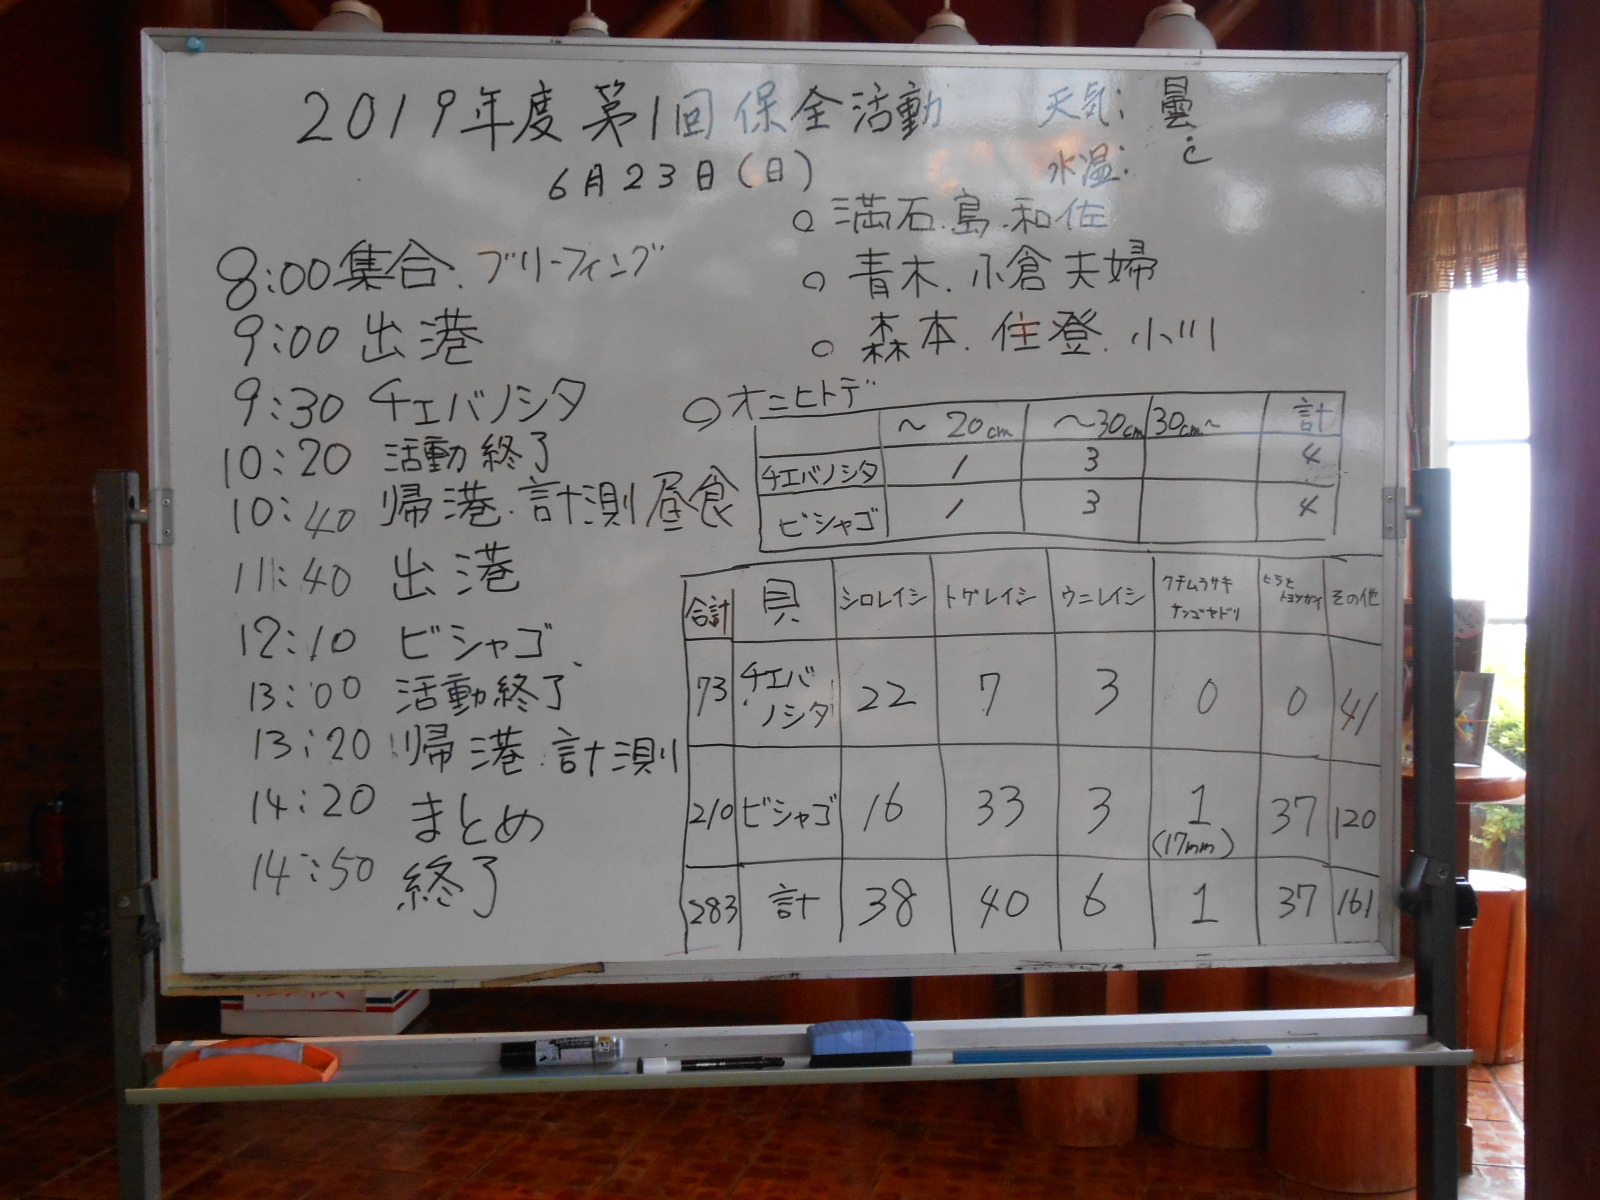 2019年度 第1回 保全活動
天気: 曇
6月23日(日)
水温: ℃
○ 満石.島.和佐
○ 青木.小倉夫婦
○ 森本.住登.小川
8:00 集合.ブリーフィング
9:00 出港
9:30 チエバノシタ
10:20 活動終了
10:40 帰港.計測 昼食
11:40 出港
12:10 ビシャゴ
13:00 活動終了
13:20 帰港.計測
14:20 まとめ
14:50 終了
○オニヒトデ
～20cm ～30cm 30cm～ 計
チエバノシタ 1 3 4
ビシャゴ 1 3 4
合計 貝 シロレイシ トゲレイシ ウニレイシ クチムラサキサンゴヤドリ その他
73 チエバノシタ 22 7 3 0 0 41
210 ビシャゴ 16 33 3 1(17mm) 37 120
283 計 38 40 6 1 37 161